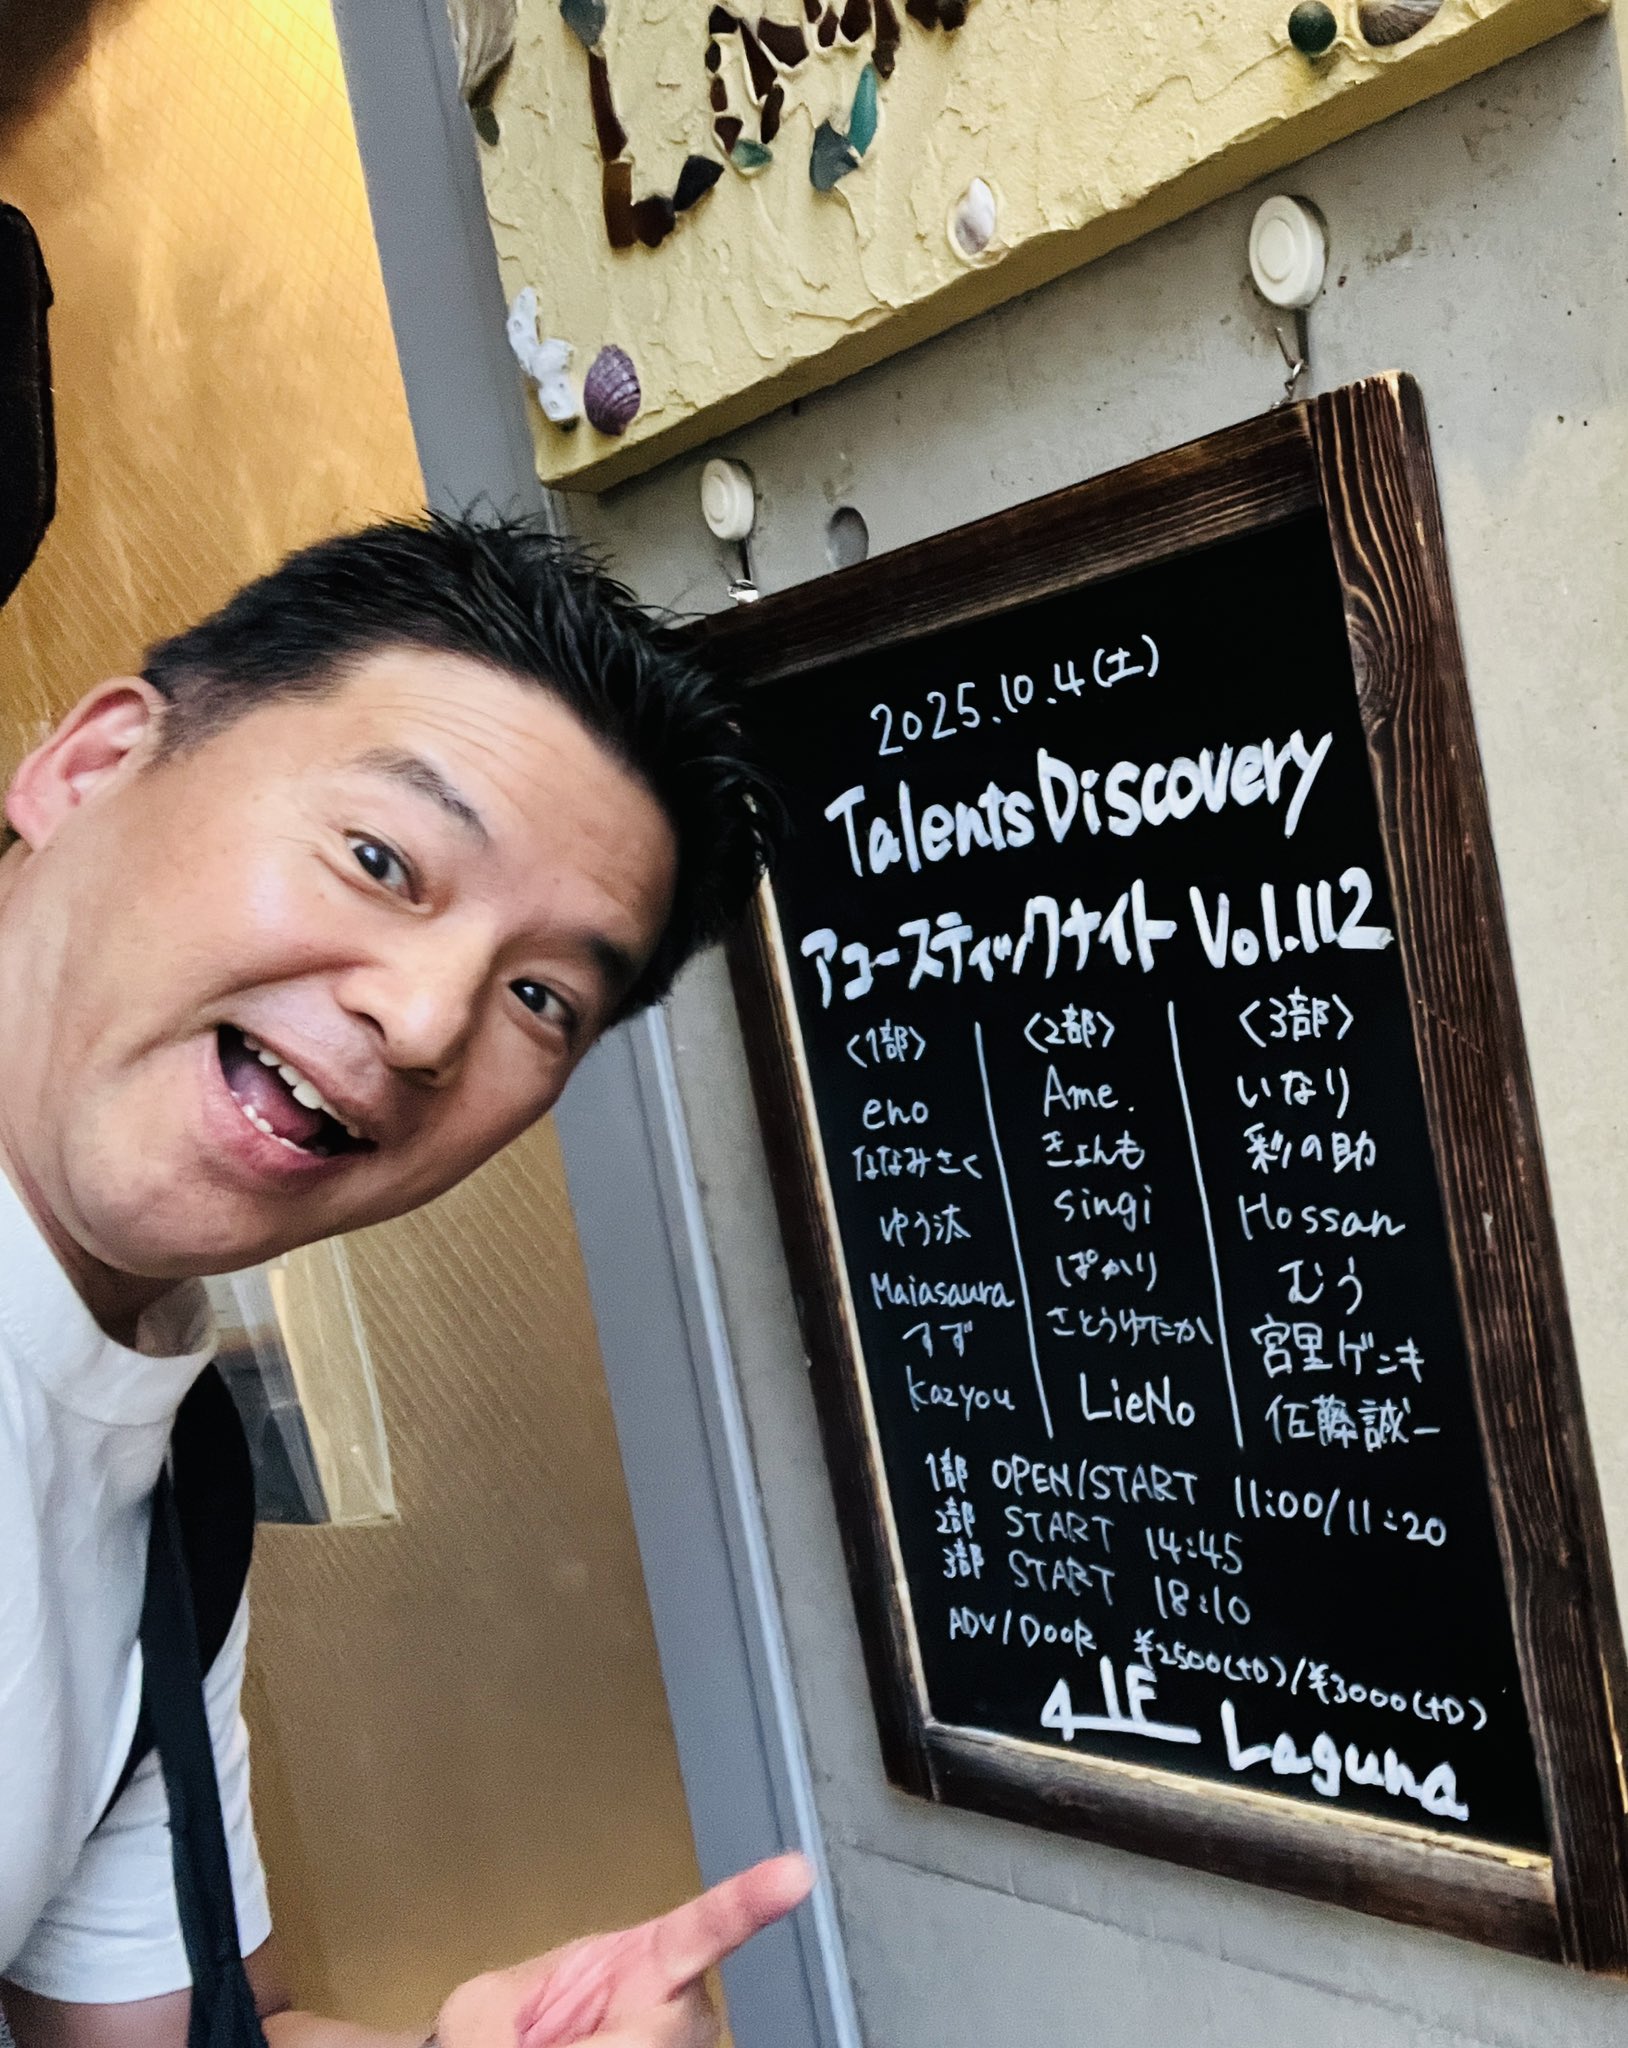 2025.10.4(土)
Talents Discovery
アコースティックナイト Vol.112
〈1部〉
eno
ななみさく
ゆう汰
Maiasaura
すず
kazyou
〈2部〉
Ame.
きょんも
singi
ぱかり
さとうゆたか
LieNo
〈3部〉
いなり
彩の助
Hossan
むう
宮里ゲンキ
佐藤誠一
1部 OPEN/START 11:00/11:20
2部 START 14:45
3部 START 18:10
ADV/DOOR ¥2500(+D)/¥3000(+D)
Laguna